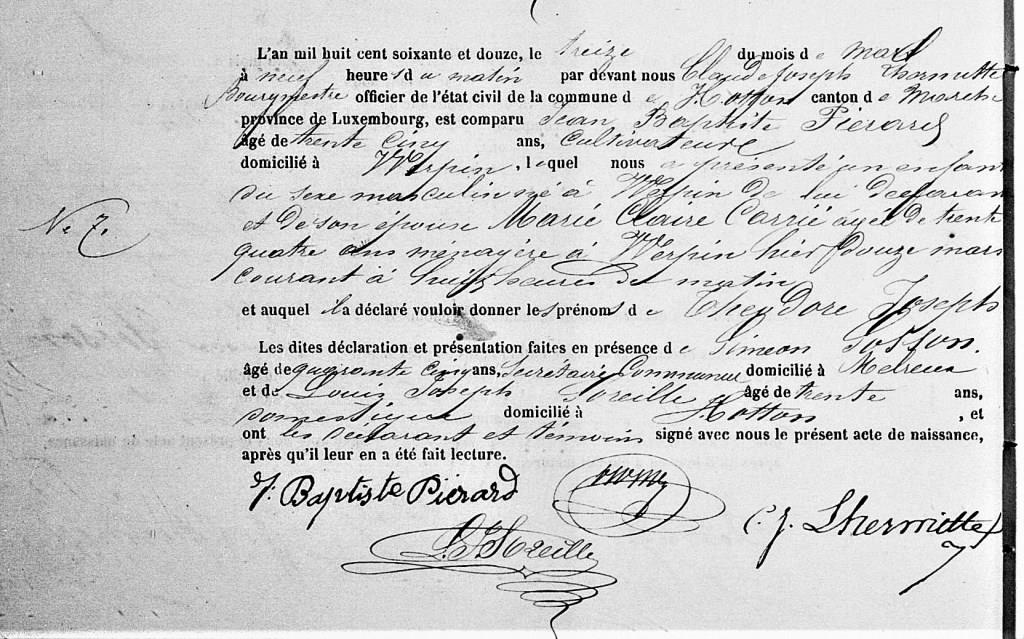 L'an mil huit cent soixante et douze, le treize du mois de mars
à neuf heures du matin par dévant nous Claude Joseph Lhermitte
Bourgmestre officier de l'état civil de la commune de Hotton canton de Marche
province de Luxembourg, est comparu Jean Baptiste Piérard
âgé de trente cinq ans, Cultivateur
domicilié à Werpin, lequel nous a présenté un enfant
du sexe masculin né à Werpin de lui déclarant
et de son épouse Marie Claire Carrie agée de trente
N. 7.
quatre ans ménagère à Werpin hier douze mars
courant à huit heures du matin
et auquel il a déclaré vouloir donner les prénoms de Théodore Joseph
Les dites déclaration et présentation faites en présence de Simeon Sosson.
âgé de quarante cinq ans, Secrétaire Communal domicilié à Melreux
et de Louis Joseph Noreille âgé de trente ans,
domestique domicilié à Hotton, et
ont les déclarant et témoins signé avec nous le présent acte de naissance,
après qu'il leur en a été fait lecture.
J. Baptiste Piérard
C. J. Lhermitte